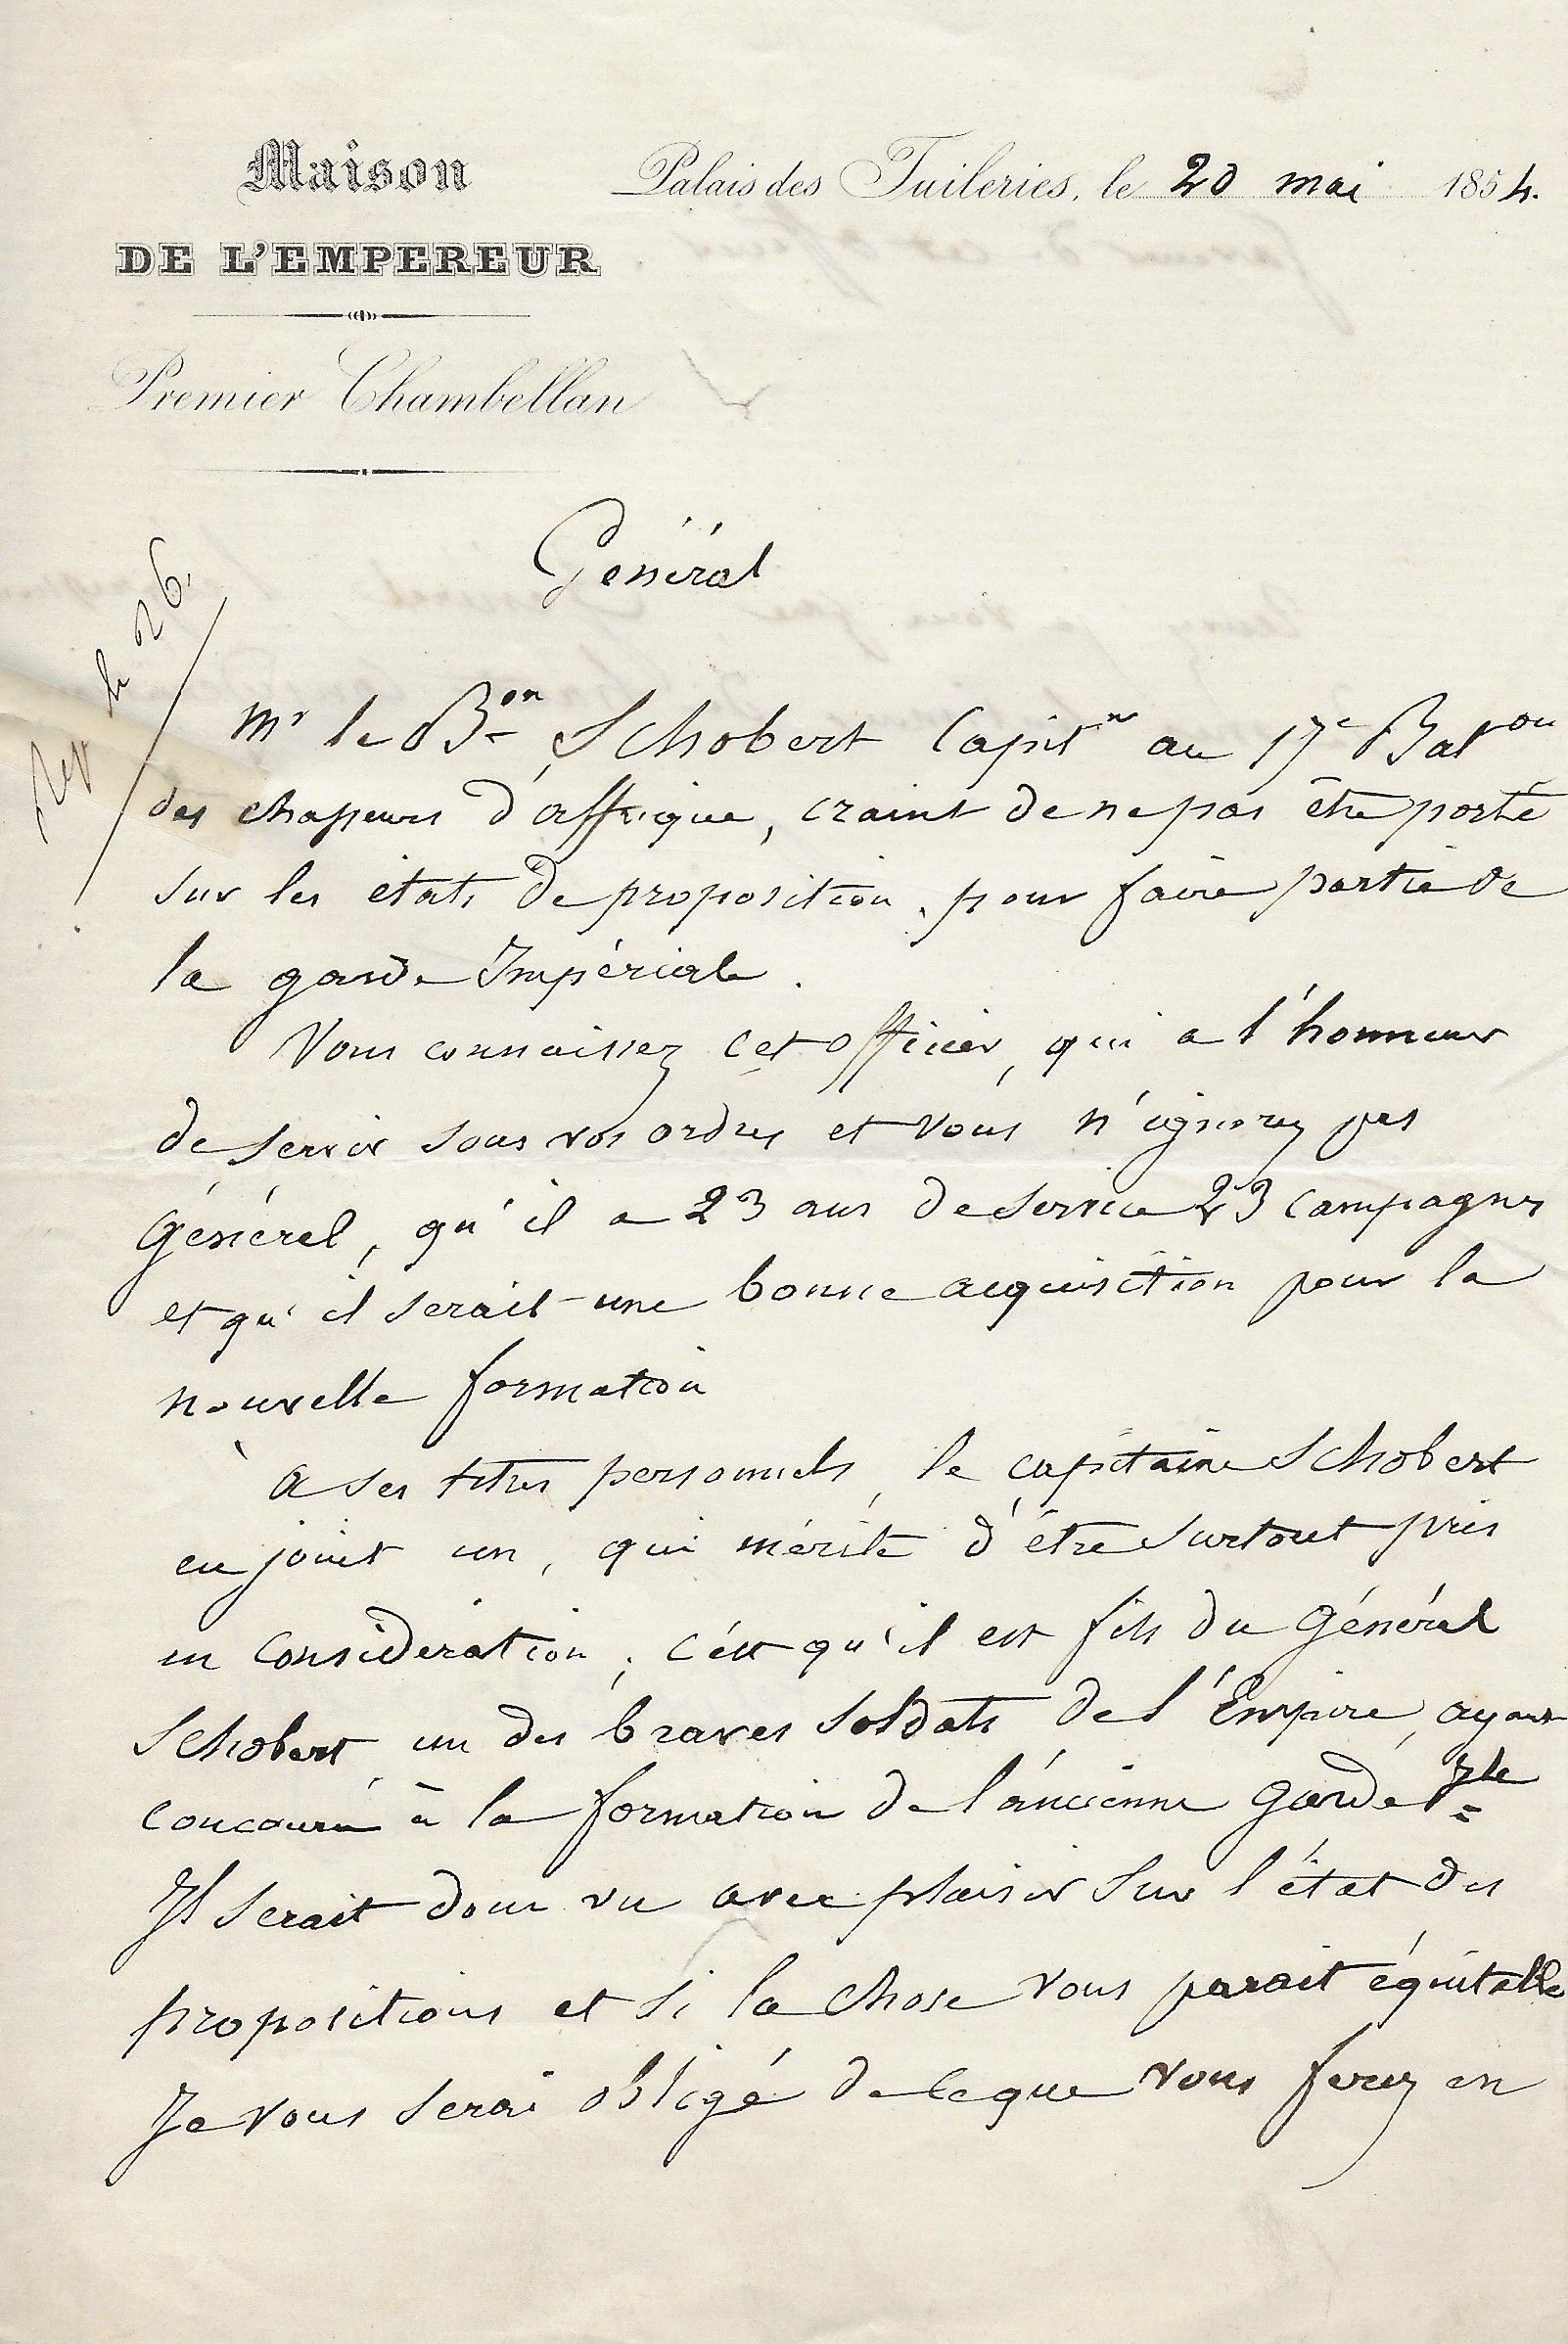 Maison
DE L'EMPEREUR
Premier Chambellan
Palais des Tuileries, le 20 mai 1854.
Général
Rep le 26.
Mr le Bon Schobert Capitne au 17e Baton
des chasseurs d'affrique, craint de ne pas être porté
sur les états de proposition, pour faire partie de
la garde Impériale.
Vous connaissez cet officier, qui a l'honneur
de servir sous vos ordres et vous n'ignorez pas
Général, qu'il a 23 ans de service 23 campagnes
et qu'il serait une bonne acquisition pour la
nouvelle formation
à ses titres personnels, le capitaine Schobert
en joint un, qui mérite d'être surtout pris
en considération, c'est qu'il est fils du Général
Schobert, un des braves soldats de l'Empire, ayant
concouru à la formation de l'ancienne Garde Ile
Il serait donc vu avec plaisir sur l'état des
propositions et si la chose vous parait équitable
Je vous serai obligé de ce que vous ferez en